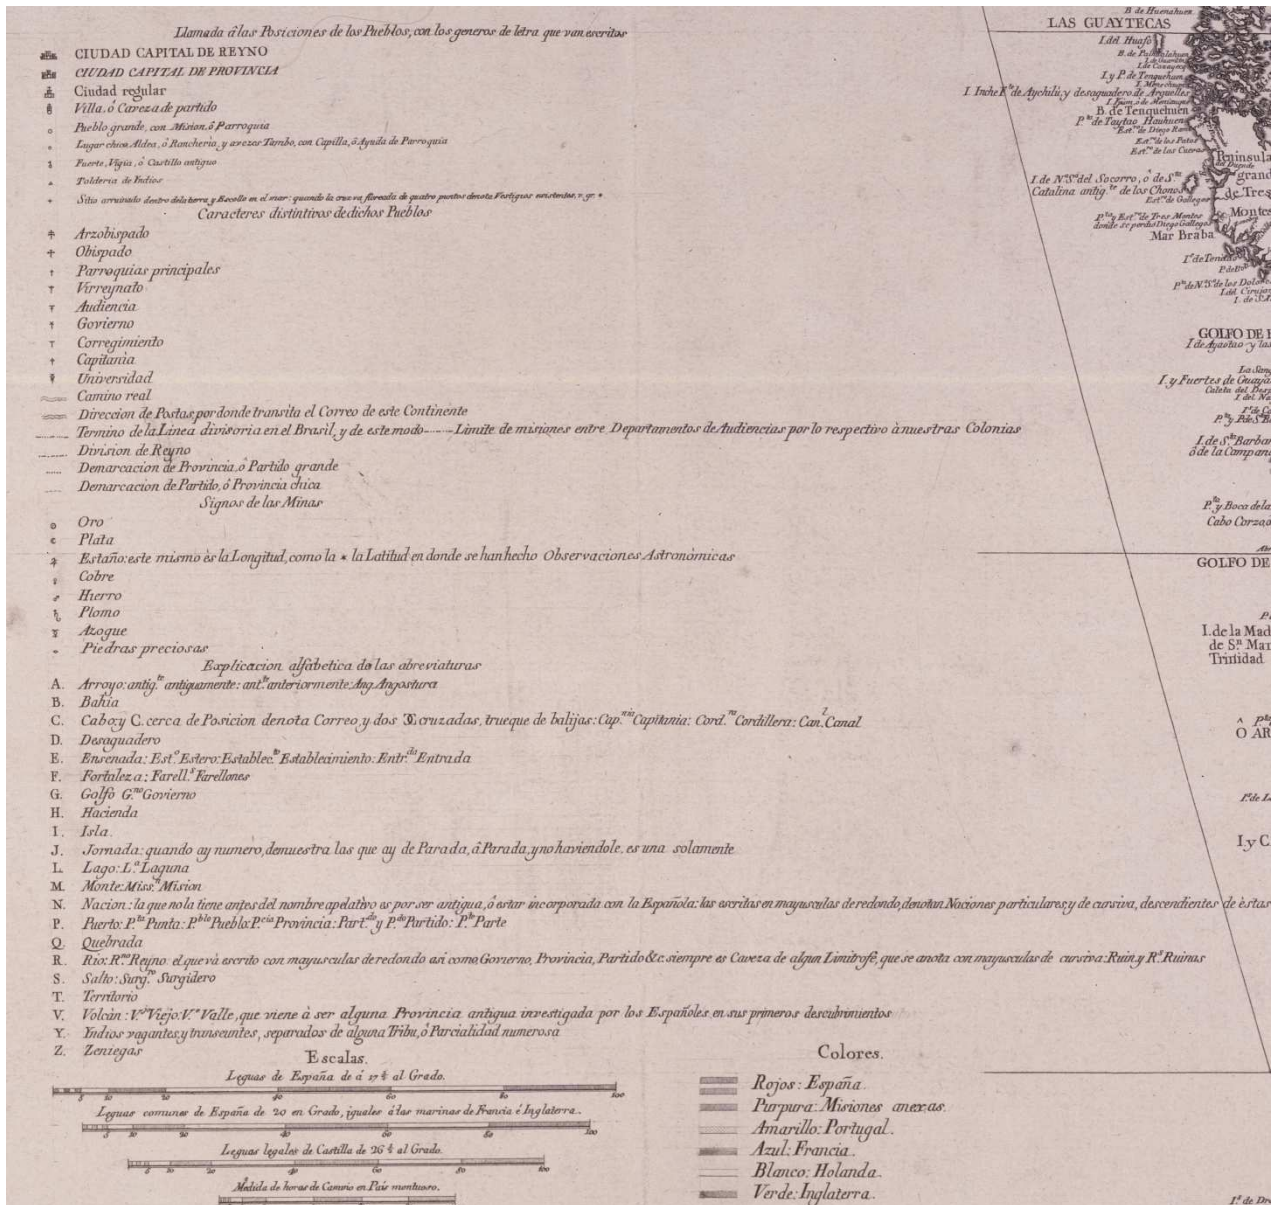 Llamada â las Posiciones de los Pueblos, con los generos de letra que van escritos
CIUDAD CAPITAL DE REYNO
CIUDAD CAPITAL DE PROVINCIA
Ciudad regular
Villa, ó Caveza de partido
Pueblo grande, con Mision, ô Parroquia
Lugar chico, Aldea, ó Rancheria, y a vezes Tambo, con Capilla, ô Ayuda de Parroquia
Fuerte, Vigia, ò Castillo antiguo
Tolderia de Indios
Sitio arruinado dentro de la tierra y Escollo en el mar: quando la cruz va floreada de quatro puntos denota Vestigios existentes, v. gr.
Caracteres distintivos de dichos Pueblos
Arzobispado
Obispado
Parroquias principales
Virreynato
Audiencia
Govierno
Corregimiento
Capitanìa
Universidad
Camino real
Direccion de Postas, por donde transita el Correo de este Continente
Termino de la Linea divisoria en el Brasil, y de este modo Limite de misiones entre Departamentos de Audiencias por lo respectivo à nuestras Colonias
Division de Reyno
Demarcacion de Provincia, ô Partido grande
Demarcacion de Partido, ó Provincia chica
Signos de las Minas
Oro
Plata
Estaño: este mismo ès la Longitud, como la * la Latitud en donde se han hecho Observaciones Astronòmicas
Cobre
Hierro
Plomo
Azogue
Piedras preciosas
Explicacion alfabetica de las abreviaturas
A. Arroyo: antig.te antiguamente: ant.te anteriormente: Ang. Angostura
B. Bahia
C. Cabo: y C. cerca de Posicion denota Correo, y dos cruzadas, trueque de balijas: Cap.nia Capitania: Cord.ra Cordillera: Can.l Canal
D. Desaguadero
E. Ensenada: Est.o Estero: Establec.to Establecimiento: Entr.da Entrada
F. Fortaleza: Farell.s Farellones
G. Golfo G.no Govierno
H. Hacienda
I. Isla.
J. Jornada: quando ay numero, demuestra las que ay de Parada, â Parada, y no haviendole, es una solamente
L. Lago: L.a Laguna
M. Monte: Miss.n Mision
N. Nacion: la que no la tiene antes del nombre apelativo es por ser antigua, ó estar incorporada con la Española: las escritas en mayusculas de redondo, denotan Naciones particulares, y de cursiva, descendientes de èstas
P. Puerto: P.ta Punta: P.ble Pueblo: P.cia Provincia: Part.do y P.do Partido: P.te Parte
Q. Quebrada
R. Rio: R.no Reyno: el que và escrito con mayusculas de redondo asi como Govierno, Provincia, Partido &c. siempre es Caveza de algun Limitrofe, que se anota con mayusculas de cursiva: Ruin. y R.s Ruinas
S. Salto: Surg.ro Surgidero
T. Territorio
V. Volcàn: V.o Viejo: V.e Valle, que viene à ser alguna Provincia antigua investigada por los Españoles en sus primeros descubrimientos
Y. Yndios vagantes y transeuntes, separados de alguna Tribu, ô Parcialidad numerosa
Z. Zeniegas
Escalas.
Leguas de España de á 17½ al Grado.
5 10 20 40 60 80 100
Leguas comunes de España de 20 en Grado, iguales â las marinas de Francia é Inglaterra.
5 10 20 40 60 80 100
Leguas legales de Castilla de 26½ al Grado.
5 10 20 40 60 80 100
Medida de horas de Camino en Pais montuoso.
Colores.
Rojos: España.
Purpura: Misiones anexas.
Amarillo: Portugal.
Azul: Francia.
Blanco: Holanda.
Verde: Inglaterra.
B. de Huenahuen
LAS GUAYTECAS
I. del Huafo
I. y P. de Tenquehuen
I. Inche E.to de Aychilù, y desaguadero de Arguelles
B. de Tenquehuen
P.to de Taytao Hauhuen
Est.o de Diego
Est.o de los Patos
Est.o de las Cuevas
Peninsula
grand
de Tres
Montes
I. de N.a S.a del Socorro, ò de S.ta
Catalina antig.te de los Chonos
Est.o de Gallegos
P.ta y Est.o de Tres Montes
donde se perdiò Diego Gallegos
Mar Braba
P.to de N.a S.a de los Dolor
I. del Cirujan
GOLFO DE
I. de Ayautao y las
I. y Fuertes de Guaya
I. de S.ta Barbar
ô de la Campan
P.ta y Boca de la
Cabo Corzo
GOLFO DE
I. de la Mad
de S.n Mar
Trinidad
O AR
I y C
I.s de Dr